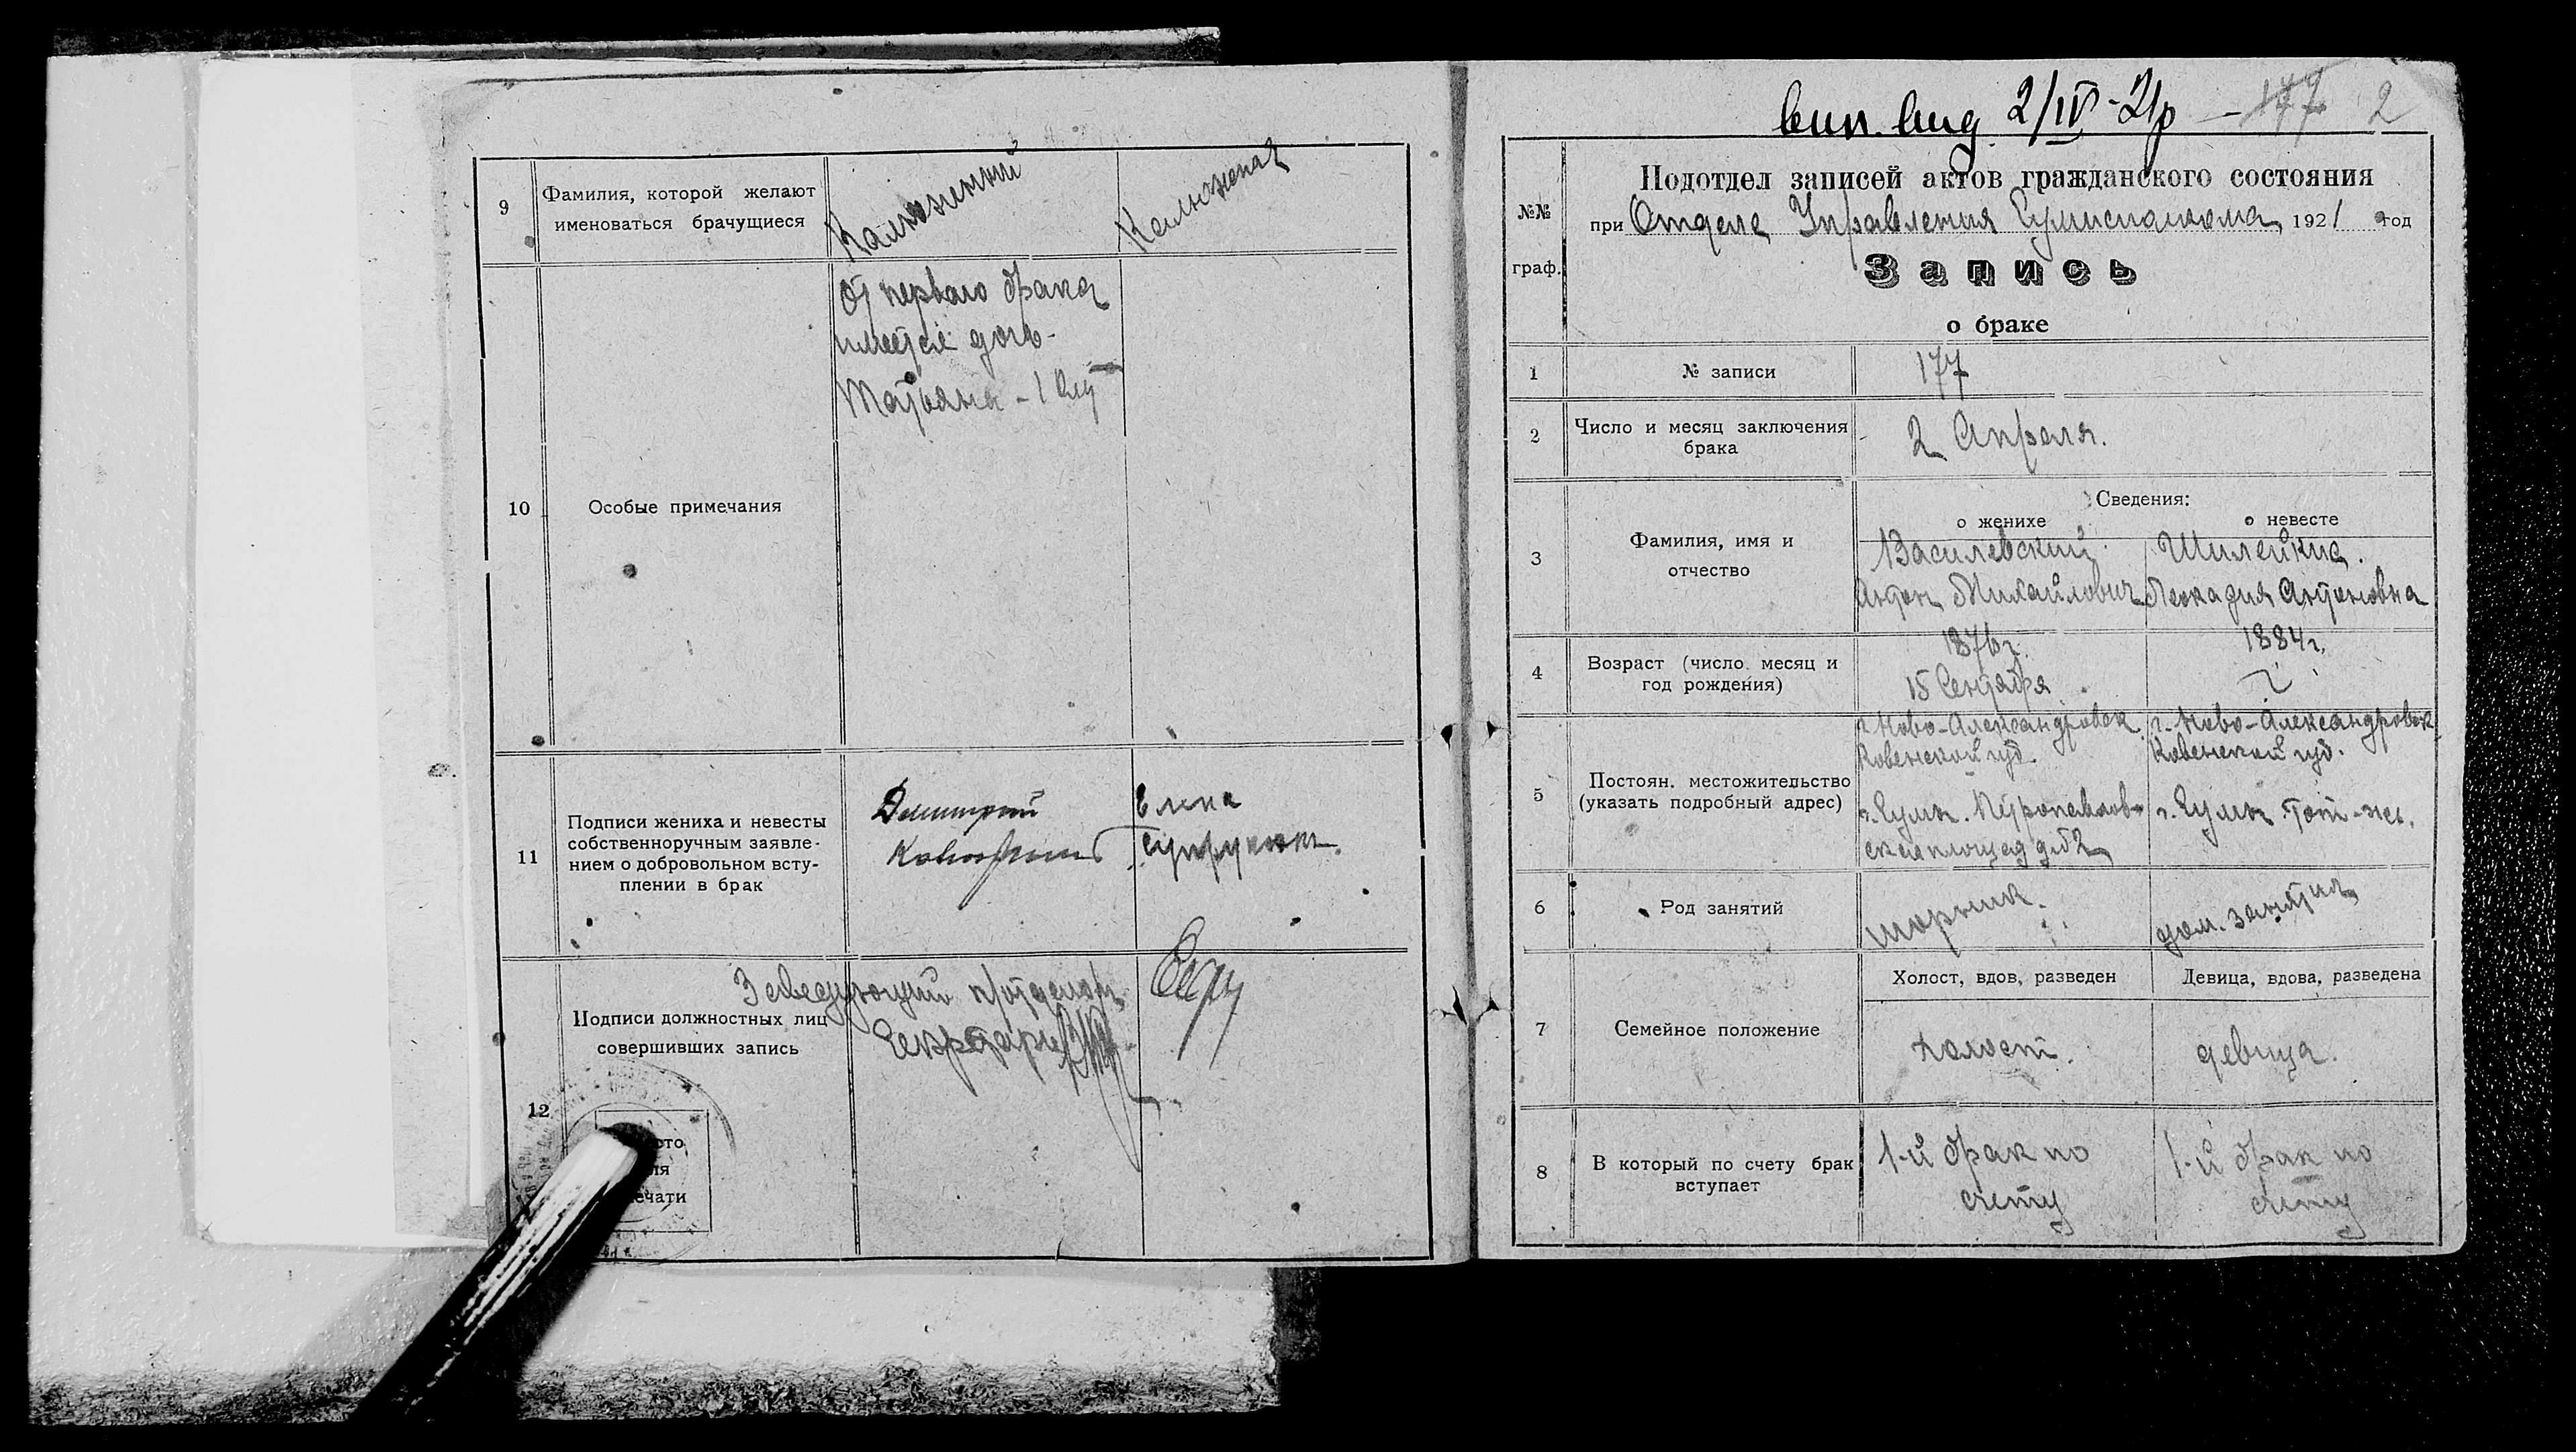 9
Фамилия, которой желают
именоваться брачущиеся
От первого брака
имеется дочь-
Татьяна - 1 г.
10
Особые примечания
11
Подписи жениха и невесты
собственноручным заявле-
нием о добровольном всту-
плении в брак
Дмитрий
Елена
Заведующий п/отделом
Подписи должностных лиц
совершивших запись
Секретарь
12
ечати
2/IV-21р - 177 2
№№
граф.
Подотдел записей актов гражданского состояния
при Отделе Управления Сумисполкома 1921 год
Запись
о браке
1
№ записи
177
2
Число и месяц заключения
брака
2 Апреля.
3
Фамилия, имя и
отчество
Сведения:
о женихе
о невесте
Василевский
Шилейкис.
Антон Михайлович
Леокадия Антоновна
4
Возраст (число месяц и
год рождения)
1876г.
15 Сентября
1884г.
5
Постоян. местожительство
(указать подробный адрес)
г. Ново-Александровск
Ковенской губ.
г. Сумы. Петропавлов-
ская площад д №2
г. Ново-Александровск
Ковенской губ.
г. Сумы. Том-же.
6
Род занятий
шорник.
дом. занятия
7
Семейное положение
Холост, вдов, разведен
Девица, вдова, разведена
холост.
девица.
8
В который по счету брак
вступает
1-й брак по
счету
1-й брак по
счету